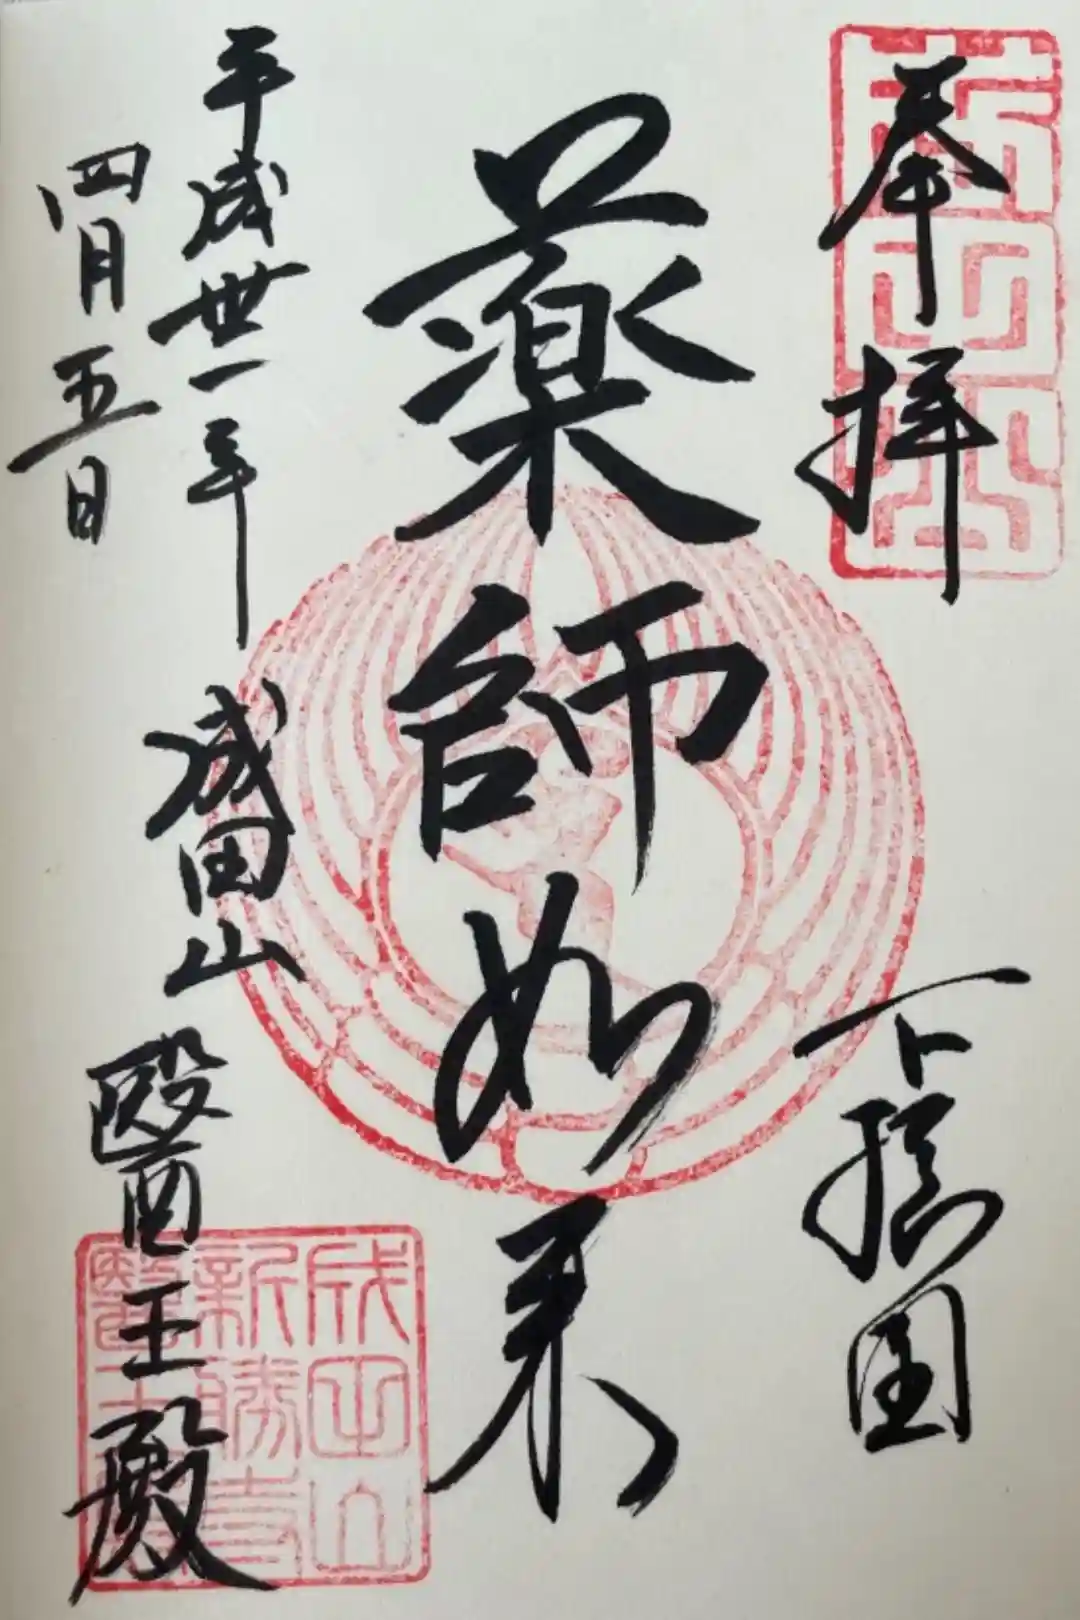 奉拝
下総国
薬師如来
平成丗一年
四月五日
成田山
醫王殿
成田山
新勝寺
醫王殿